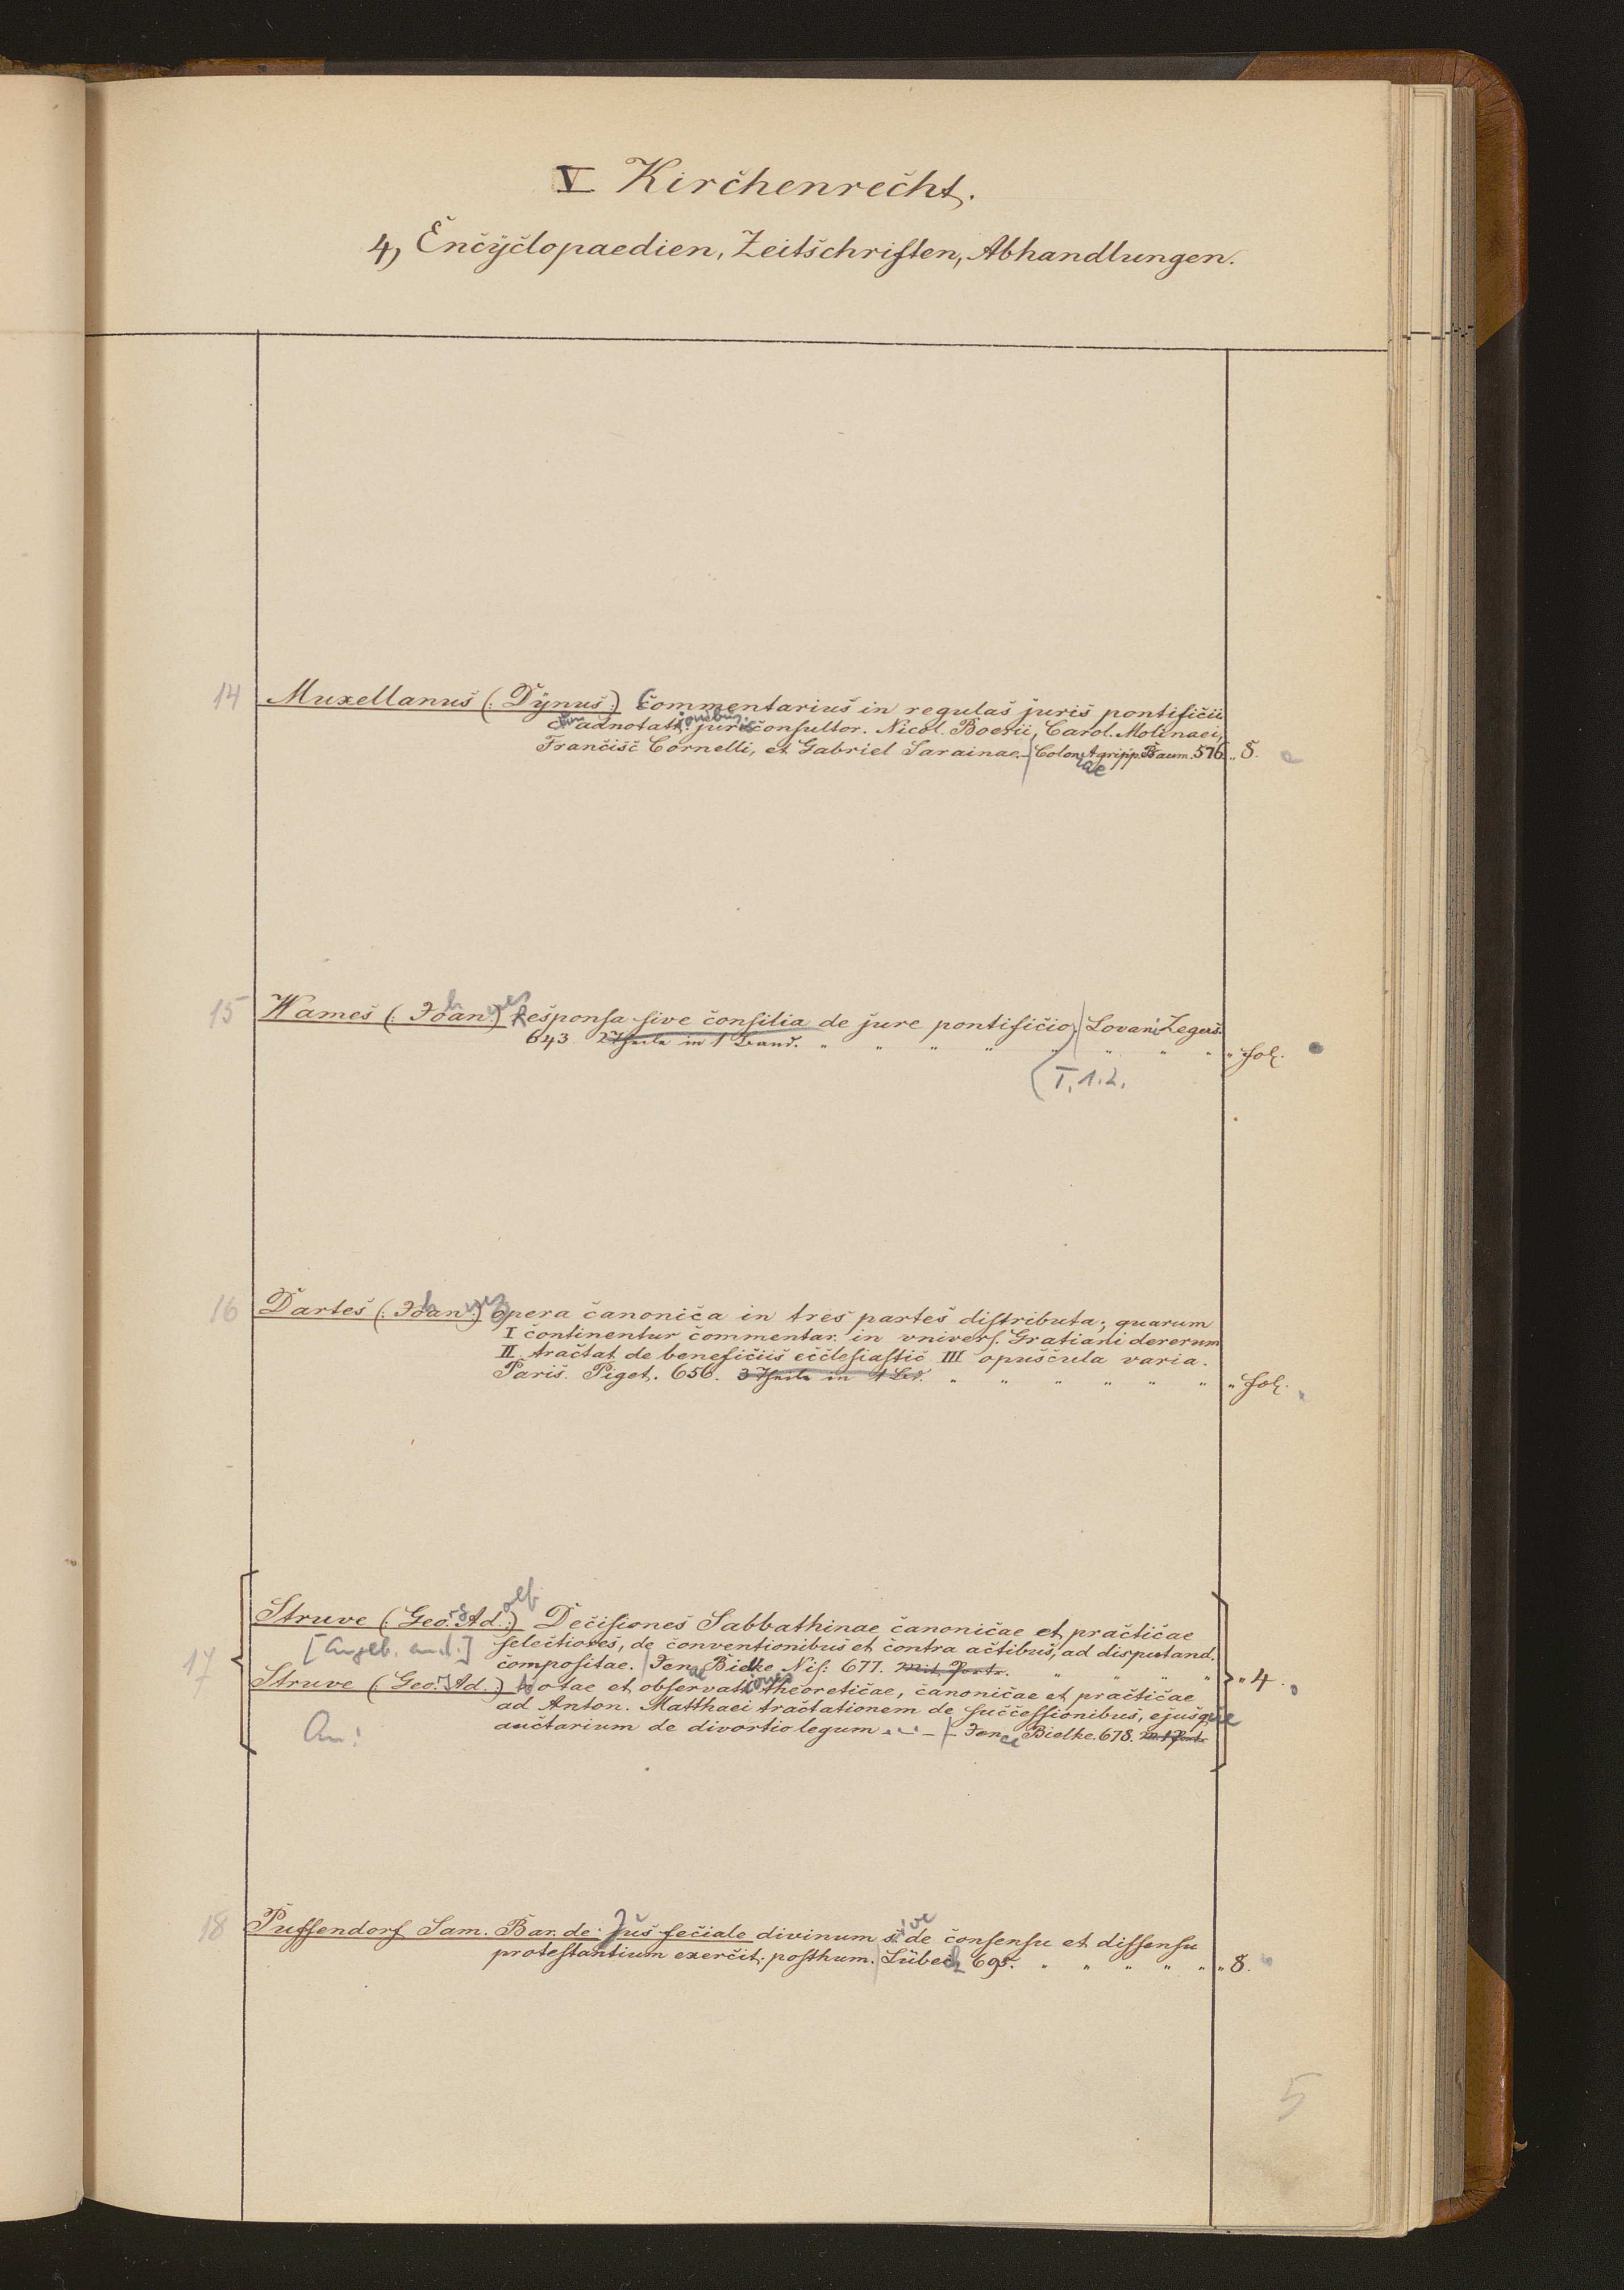 V Kirchenrecht.
4, Encyclopaedien, Zeitschriften, Abhandlungen.
14 Muxellanus (: Dynus :) Commentarius in regulas juris pontificii
cum adnotationibus jurisconsultor. Nicol. Boerii, Carol. Molinaei,
Francisc Cornelli, et Gabriel Sarainae. Coloniae Agripp. Baum. 576. „ 8.
15 Wames (: Johannes) Responsa sive consilia de jure pontificio, Lovani Zegers.
643. 2 Theile in 1 Band. „ „ „ „ „ „ „ „ „ fol.
(T. 1.2.
16 Dartes (: Johannes) opera canonica in tres partes distributa; quarum
I continentur commentar. in univers. Gratiani dererum
II. tractat. de beneficiis ecclesiastic III opuscula varia.
Paris. Piget. 656. 3 Theile in 1 Bd. „ „ „ „ „ „ „ fol.
17 Struve (: Georg Adolf :) Decisiones Sabbathinae canonicae et practicae
[Angeb. und.] selectiores, de conventionibus et contra actibus, ad disputand.
compositae. Jenae Bielke Nis: 677. Mit Portr. „ „ „ „ „ 4.
Struve (: Georg Ad. :) notae et observationes theoreticae, canonicae et practicae
ad Anton. Matthaei tractationem de successionibus, ejusque
An: auctarium de divortio legum „ „ – Jenae Bielke. 678. M. 1 Port.
18 Puffendorf Sam. Bar. de: Jus feciale divinum sive de consensu et dissensu
protestantium exercit. posthum. Lübeck 695. „ „ „ „ „ „ 8.
5